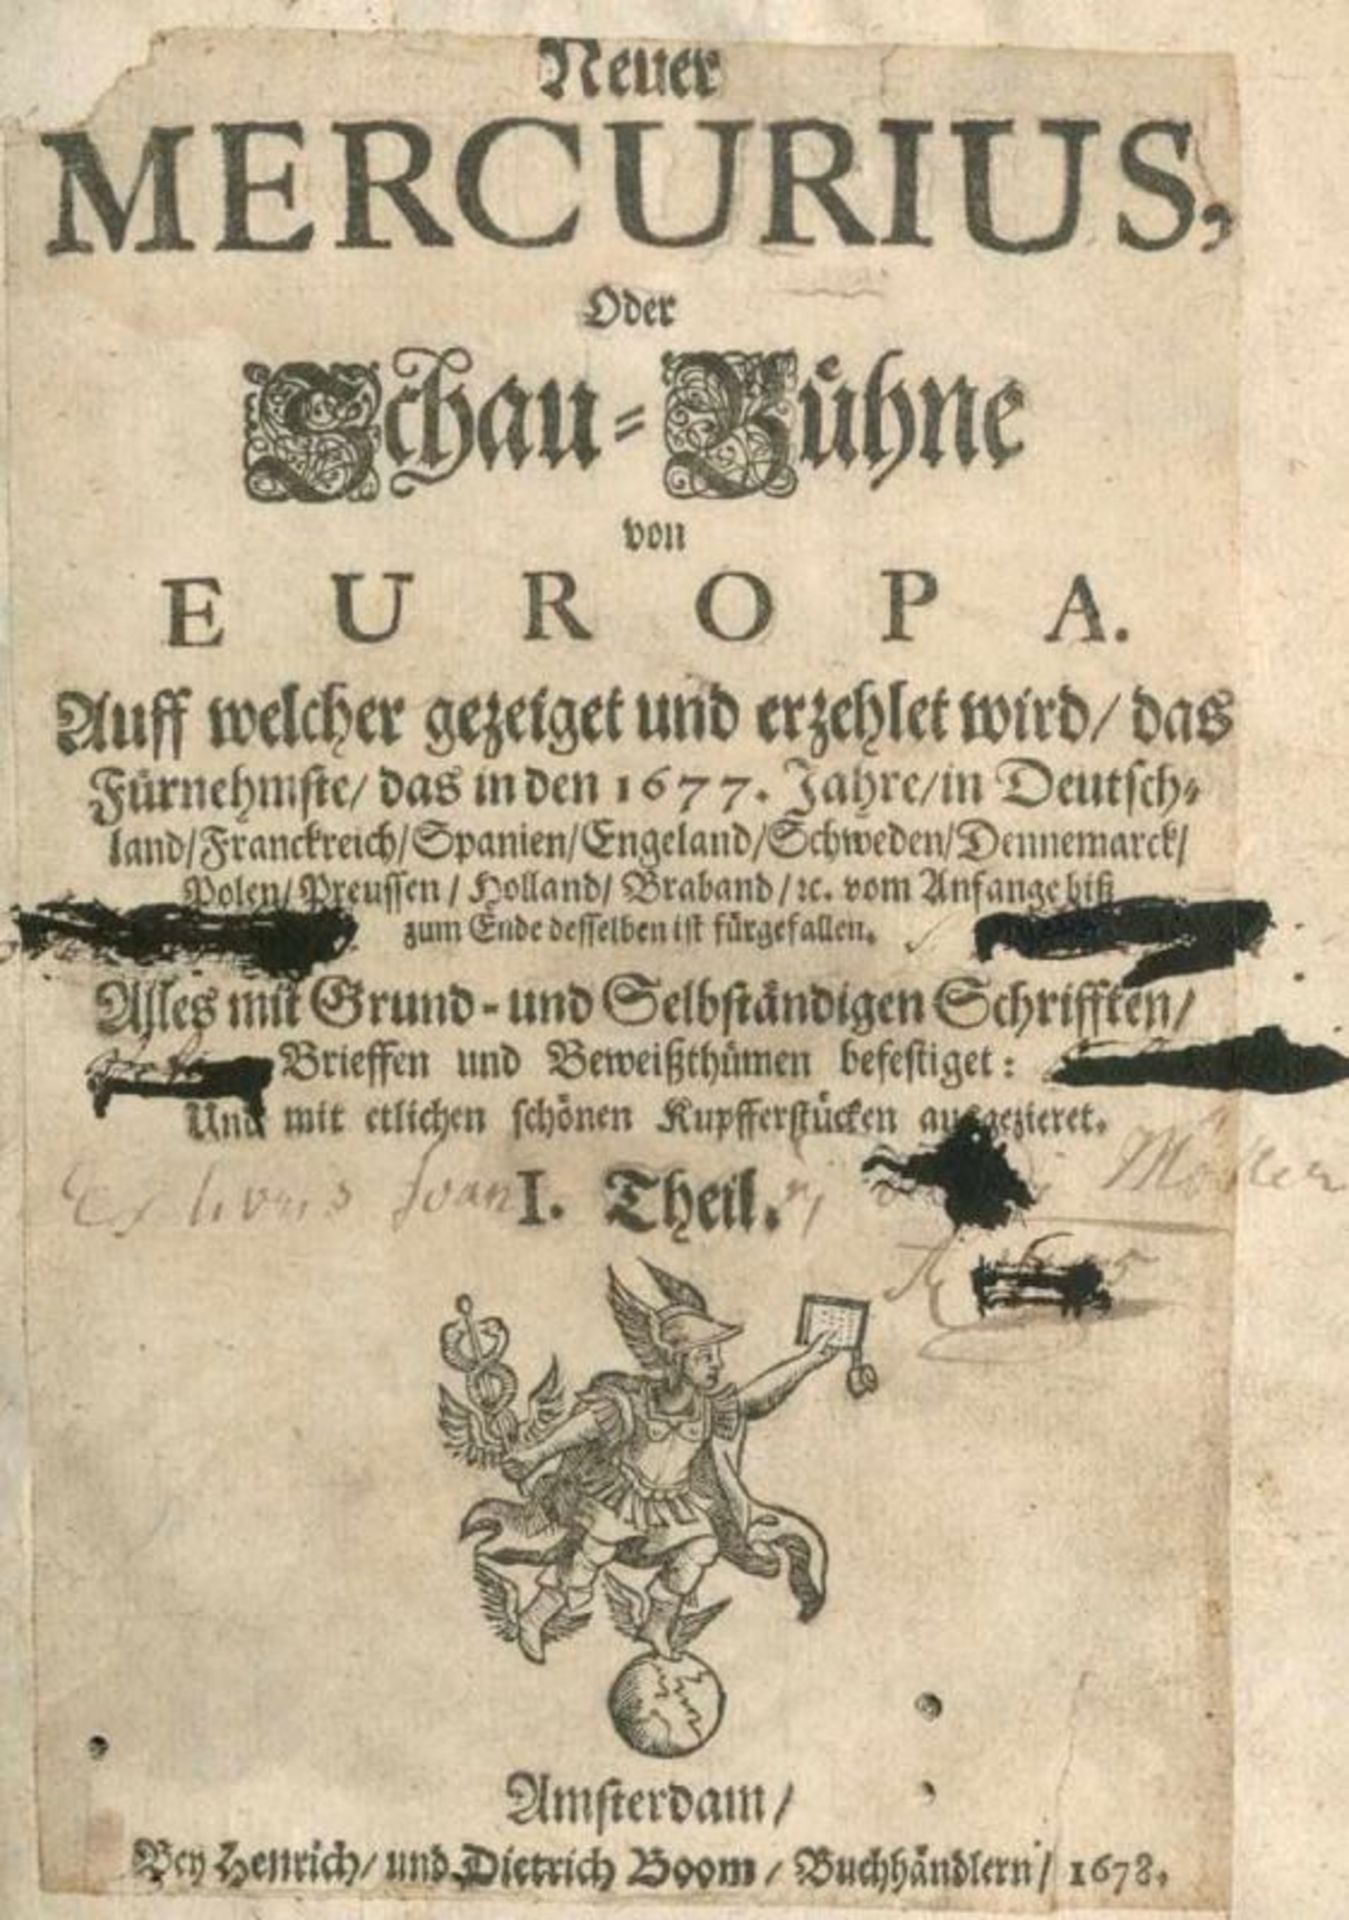 Neuer
MERCURIUS,
Oder
Schau-Bühne
von
EUROPA.
Auff welcher gezeiget und erzehlet wird/ das
Fürnehmste/ das in den 1677. Jahre/ in Deutsch-
land/ Franckreich/ Spanien/ Engeland/ Schweden/ Dennemarck/
Polen/ Preussen/ Holland/ Braband/ ꝛc. vom Anfange biß
zum Ende desselben ist fürgefallen.
Alles mit Grund- und Selbständigen Schrifften/
Brieffen und Beweißthümen befestiget:
Und mit etlichen schönen Kupfferstücken ausgezieret.
Ex libris Joan
I. Theil.
Amsterdam/
Bey Henrich/ und Dietrich Boom/ Buchhändlern/ 1678.